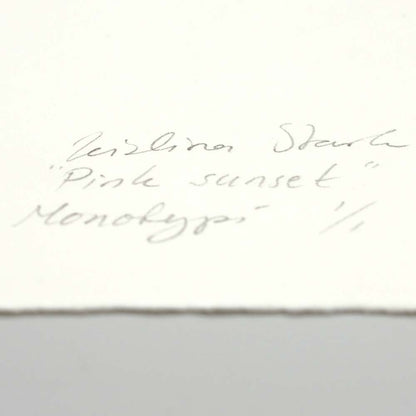 Kristina Stark
"Pink sunset"
Monotypi 1/1